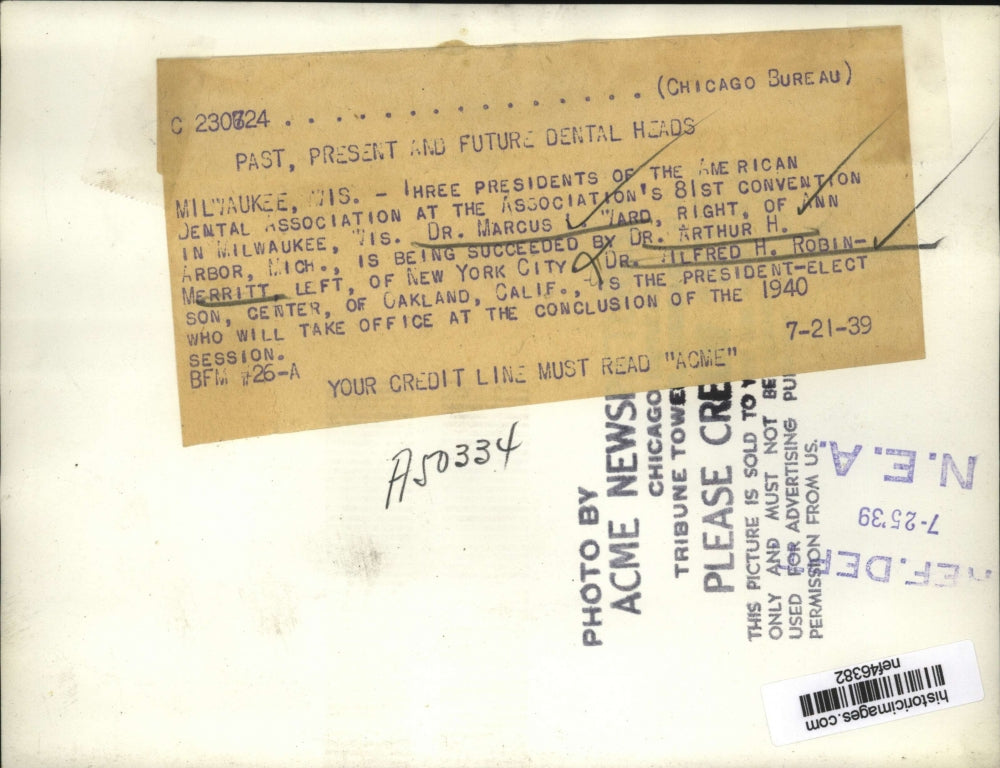 C 230824 . . . . . . . . . . . . . . . . . . (CHICAGO BUREAU)
PAST, PRESENT AND FUTURE DENTAL HEADS
MILWAUKEE, WIS. - THREE PRESIDENTS OF THE AMERICAN
DENTAL ASSOCIATION AT THE ASSOCIATION'S 81ST CONVENTION
IN MILWAUKEE, WIS. DR. MARCUS L. WARD, RIGHT, OF ANN
ARBOR, MICH., IS BEING SUCCEEDED BY DR. ARTHUR H.
MERRITT, LEFT, OF NEW YORK CITY DR. ALFRED H. ROBIN-
SON, CENTER, OF OAKLAND, CALIF., IS THE PRESIDENT-ELECT
WHO WILL TAKE OFFICE AT THE CONCLUSION OF THE 1940
SESSION.
BFM #26-A
7-21-39
YOUR CREDIT LINE MUST READ "ACME"
A50334
PHOTO BY
ACME NEWS
CHICAGO
TRIBUNE TOWE
PLEASE CRE
THIS PICTURE IS SOLD TO
ONLY AND MUST NOT BE
USED FOR ADVERTISING PU
PERMISSION FROM US.
N.E.A.
7-25'39
REF. DEPT.
historicimages.com
nef46382